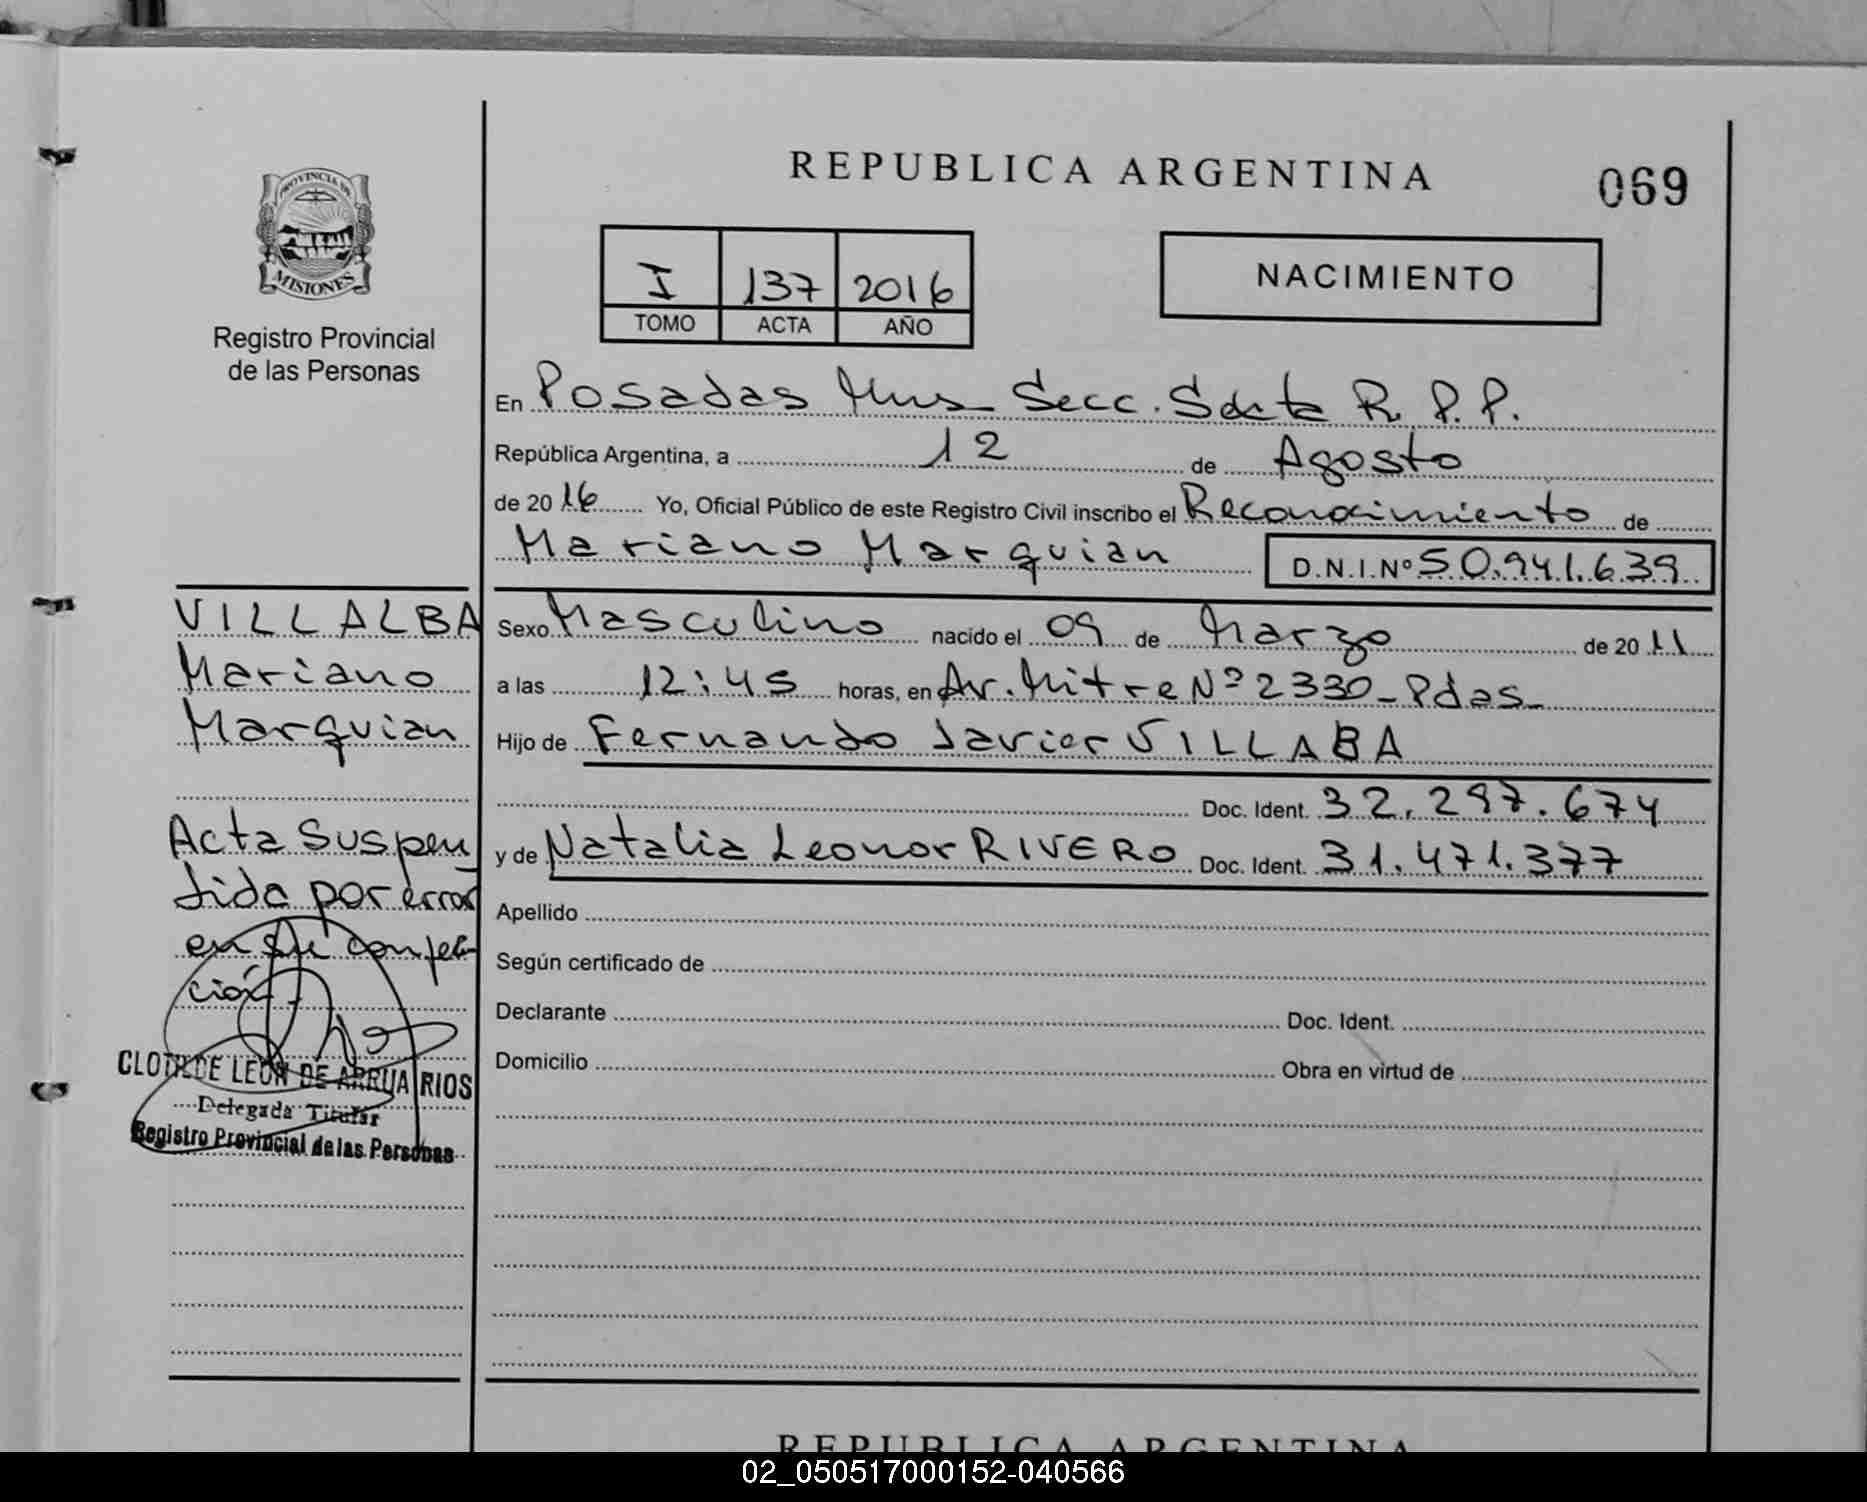 REPUBLICA ARGENTINA
069
PROVINCIA DE
MISIONES
Registro Provincial
de las Personas
I 137 2016
TOMO ACTA AÑO
NACIMIENTO
En Posadas Mns Secc. Sexta R. P. P.
República Argentina, a 12 de Agosto
de 20 16 Yo, Oficial Público de este Registro Civil inscribo el Reconocimiento de
Mariano Marquian D.N.I.Nº 50.941.639
Sexo Masculino nacido el 09 de Marzo de 20 11
a las 12:45 horas, en Av. Mitre Nº 2330 - Pdas -
Hijo de Fernando Javier VILLABA
Doc. Ident. 32.297.674
y de Natalia Leonor RIVERO Doc. Ident. 31.471.377
Apellido
Según certificado de
Declarante Doc. Ident.
Domicilio Obra en virtud de
VILLALBA
Mariano
Marquian
Acta Suspen
dida por error
en su confec-
ción.
CLOTILDE LEON DE ARRUA RIOS
Delegada Titular
Registro Provincial de las Personas
REPUBLICA ARGENTINA
02_050517000152-040566